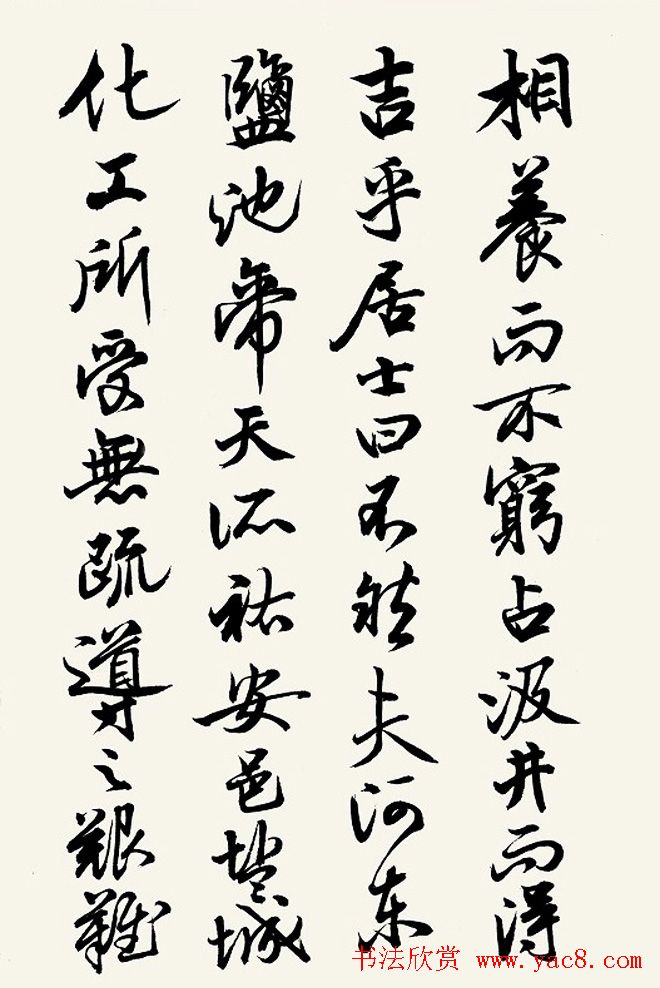 相養而不窮占汲井而得
吉乎居士曰不然夫河东
鹽池帝天所祐安邑城
化工所受無疏導之艱難
书法欣赏 www.yac8.com